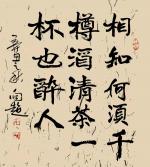 相知何須千
樽酒清茶一
杯也醉人